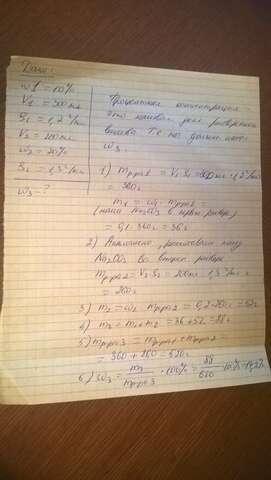 Дано:
w1 = 10%
V1 = 300 мл
ρ1 = 1,2 г/мл
V2 = 200 мл
w2 = 20%
ρ2 = 1,3 г/мл
w3 - ?
Процентная концентрация
это массовая доля растворенного
вещества. Т.е. мы должны найти
w3.
1) mр-ра1 = V1·ρ1 = 300 мл · 1,2 г/мл
= 360 г
m1 = w1 · mр-ра1 =
(масса Na2CO3 в первом растворе)
= 0,1 · 360г = 36г
2) Аналогично, рассчитываем массу
Na2CO3 во втором растворе
mр-ра2 = V2·ρ2 = 200мл · 1,3 г/мл =
= 260г
3) m2 = w2 · mр-ра2 = 0,2 · 260г = 52г
4) m3 = m1 + m2 = 36 + 52 = 88г
5) mр-ра3 = mр-ра1 + mр-ра2 =
= 360 + 260 = 620г
6) w3 = m3 / mр-ра3 · 100% = 88 / 620 · 100% = 14,2%